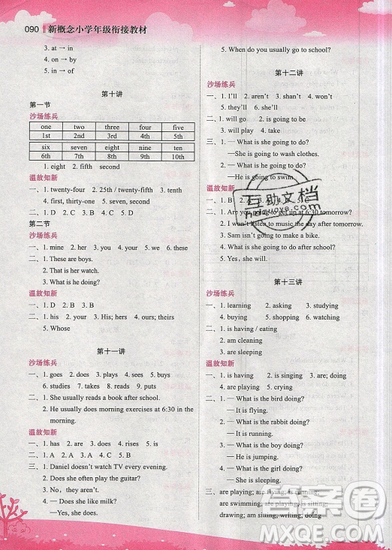 090 新概念小学年级衔接教材
3. at → in
4. on → by
5. in → of
第十讲
第一节
沙场练兵
one two three four five
1st 2nd 3rd 4th 5th
six seven eight nine ten
6th 7th 8th 9th 10th
1. eight 2. fifth 3. second
温故知新
一、1. twenty-four 2. 25th / twenty-fifth
4. first, thirty-one 5. seven, seventh
二、1. D 2. C 3. C 4. B 5. C
第二节
沙场练兵
一、1. mine 2. her 3. you 4. your 5. we 6. these
二、1. These are boys.
2. That is her watch.
3. What is he doing?
温故知新
一、1. D 2. B 3. B
二、1. his 2. Is 3. Here 4. ours, theirs
5. Whose
第十一讲
沙场练兵
一、1. goes 2. does 3. plays 4. sees 5. buys
6. studies 7. takes 8. has
二、She usually reads a book after school.
He usually does morning exercises at 6:30 in the
morning.
温故知新
一、1. A 2. A 3. B 4. A 5. B
二、1. Daniel doesn't watch TV every evening.
2. Does she often play the guitar?
3. No, they aren't.
4. — Does she like milk?
— Yes, she does.
5. When do you usually go to school?
第十二讲
沙场练兵
一、1. I'll 2. aren't 3. shan't 4. she'll
5. isn't 6. won't
二、1. will 2. is going to be
三、1. — What is she going to do?
— She is going to wash clothes.
2. — What is he going to do?
— He is going to swim.
温故知新
一、1. D 2. B 3. D
二、1. Are you going to get up at 6:30 tomorrow?
2. I won't listen to music the day after tomorrow.
3. Sam isn't going to make a bike.
4. What will she do after school?
5. What are you going to do tomorrow?
第十三讲
沙场练兵
一、1. learning 2. asking 3. studying
4. buying 5. shopping 6. watching
二、1. is having / eating
2. am cleaning
温故知新
一、1. is having 2. is singing 3. are; doing
4. are playing 5. is running
二、1. — What is the bird doing?
— It is flying.
2. — What is the rabbit doing?
— It is running.
3. — What is the boy doing?
— He is jumping.
4. — What is the girl doing?
— She is cleaning.
三、are playing; am
are swimming
drawing; is
互助文档